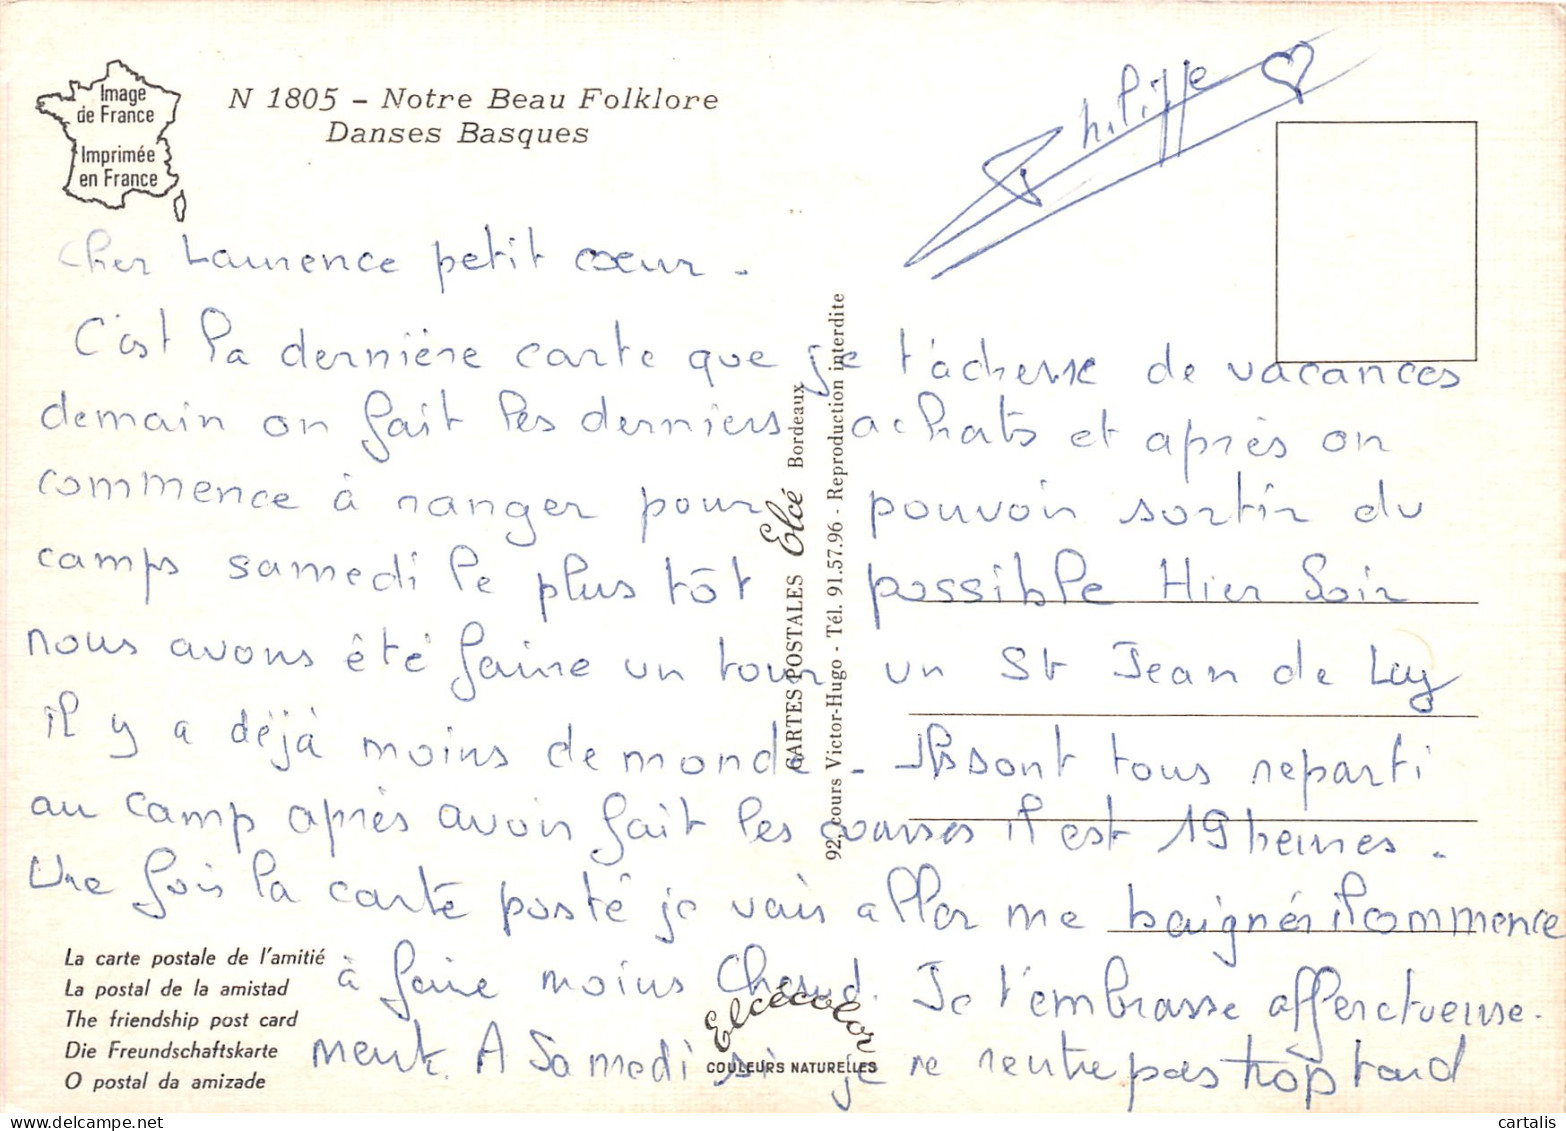 Image
de France
Imprimée
en France
N 1805 - Notre Beau Folklore
Danses Basques
Philippe
Cher Laurence petit cœur -
C'est la dernière carte que je t'acheuse de vacances
demain on fait les derniers achats et après on
commence à ranger pour pouvoir sortir du
camps samedi le plus tôt possible Hier Soir
nous avons été faire un tour un St Jean de Luy
il y a déjà moins de monde - Ils sont tous reparti
au camp après avoir fait les courses il est 19 heures -
Une fois la carte posté je vais aller me baignér il commence
à faire moins Chaud. Je t'embrasse affectueuse-
ment. A Samedi si je ne rentre pas trop tard
CARTES POSTALES Elcé Bordeaux
92, cours Victor-Hugo - Tél. 91.57.96 - Reproduction interdite
La carte postale de l'amitié
La postal de la amistad
The friendship post card
Die Freundschaftskarte
O postal da amizade
Elcécolor
COULEURS NATURELLES
cartalis